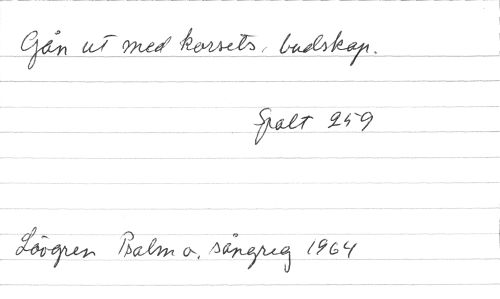 Gån ut med korsets budskap.
Spalt 259
Lövgren Psalm o. sångreg 1964